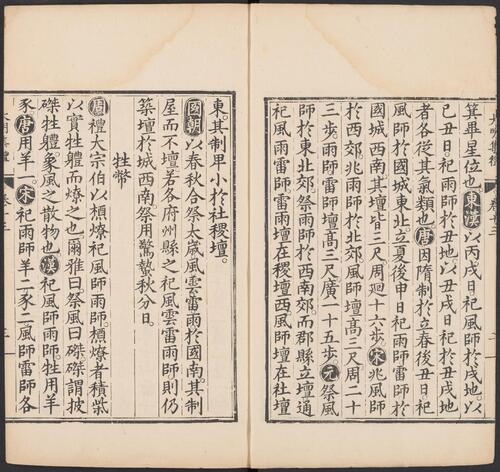 箕畢星位也東漢以丙戌日祀風師於戌地以
己丑日祀雨師於丑地以丑戌日祀於丑戌地
者各從其氣類也唐因隋制於立春後丑日祀
風師於國城東北立夏後申日祀雨師雷師於
國城西南其壇皆三尺周迴十六步宋兆風師
於西郊兆雨師於北郊風師壇高三尺周二十
三步雨師雷師壇高三尺廣一十五步元祭風
師於東北郊祭雨師於西南郊而郡縣立壇通
祀風雨雷師雷雨壇在稷壇西風師壇在社壇
東其制卑小於社稷壇
國朝以春秋合祭太歲風雲雷雨於國南其制
屋而不壇若各府州縣之祀風雲雷雨師則仍
築壇於城西南祭用驚蟄秋分日
牲幣
周禮大宗伯以槱燎祀風師雨師槱燎者積柴
以實牲體而燎之也爾雅曰祭風曰磔磔謂披
磔牲體象風之散物也漢祀風師雨師牲用羊
豕唐用羊一宋祀雨師羊二豕二風師雷師各